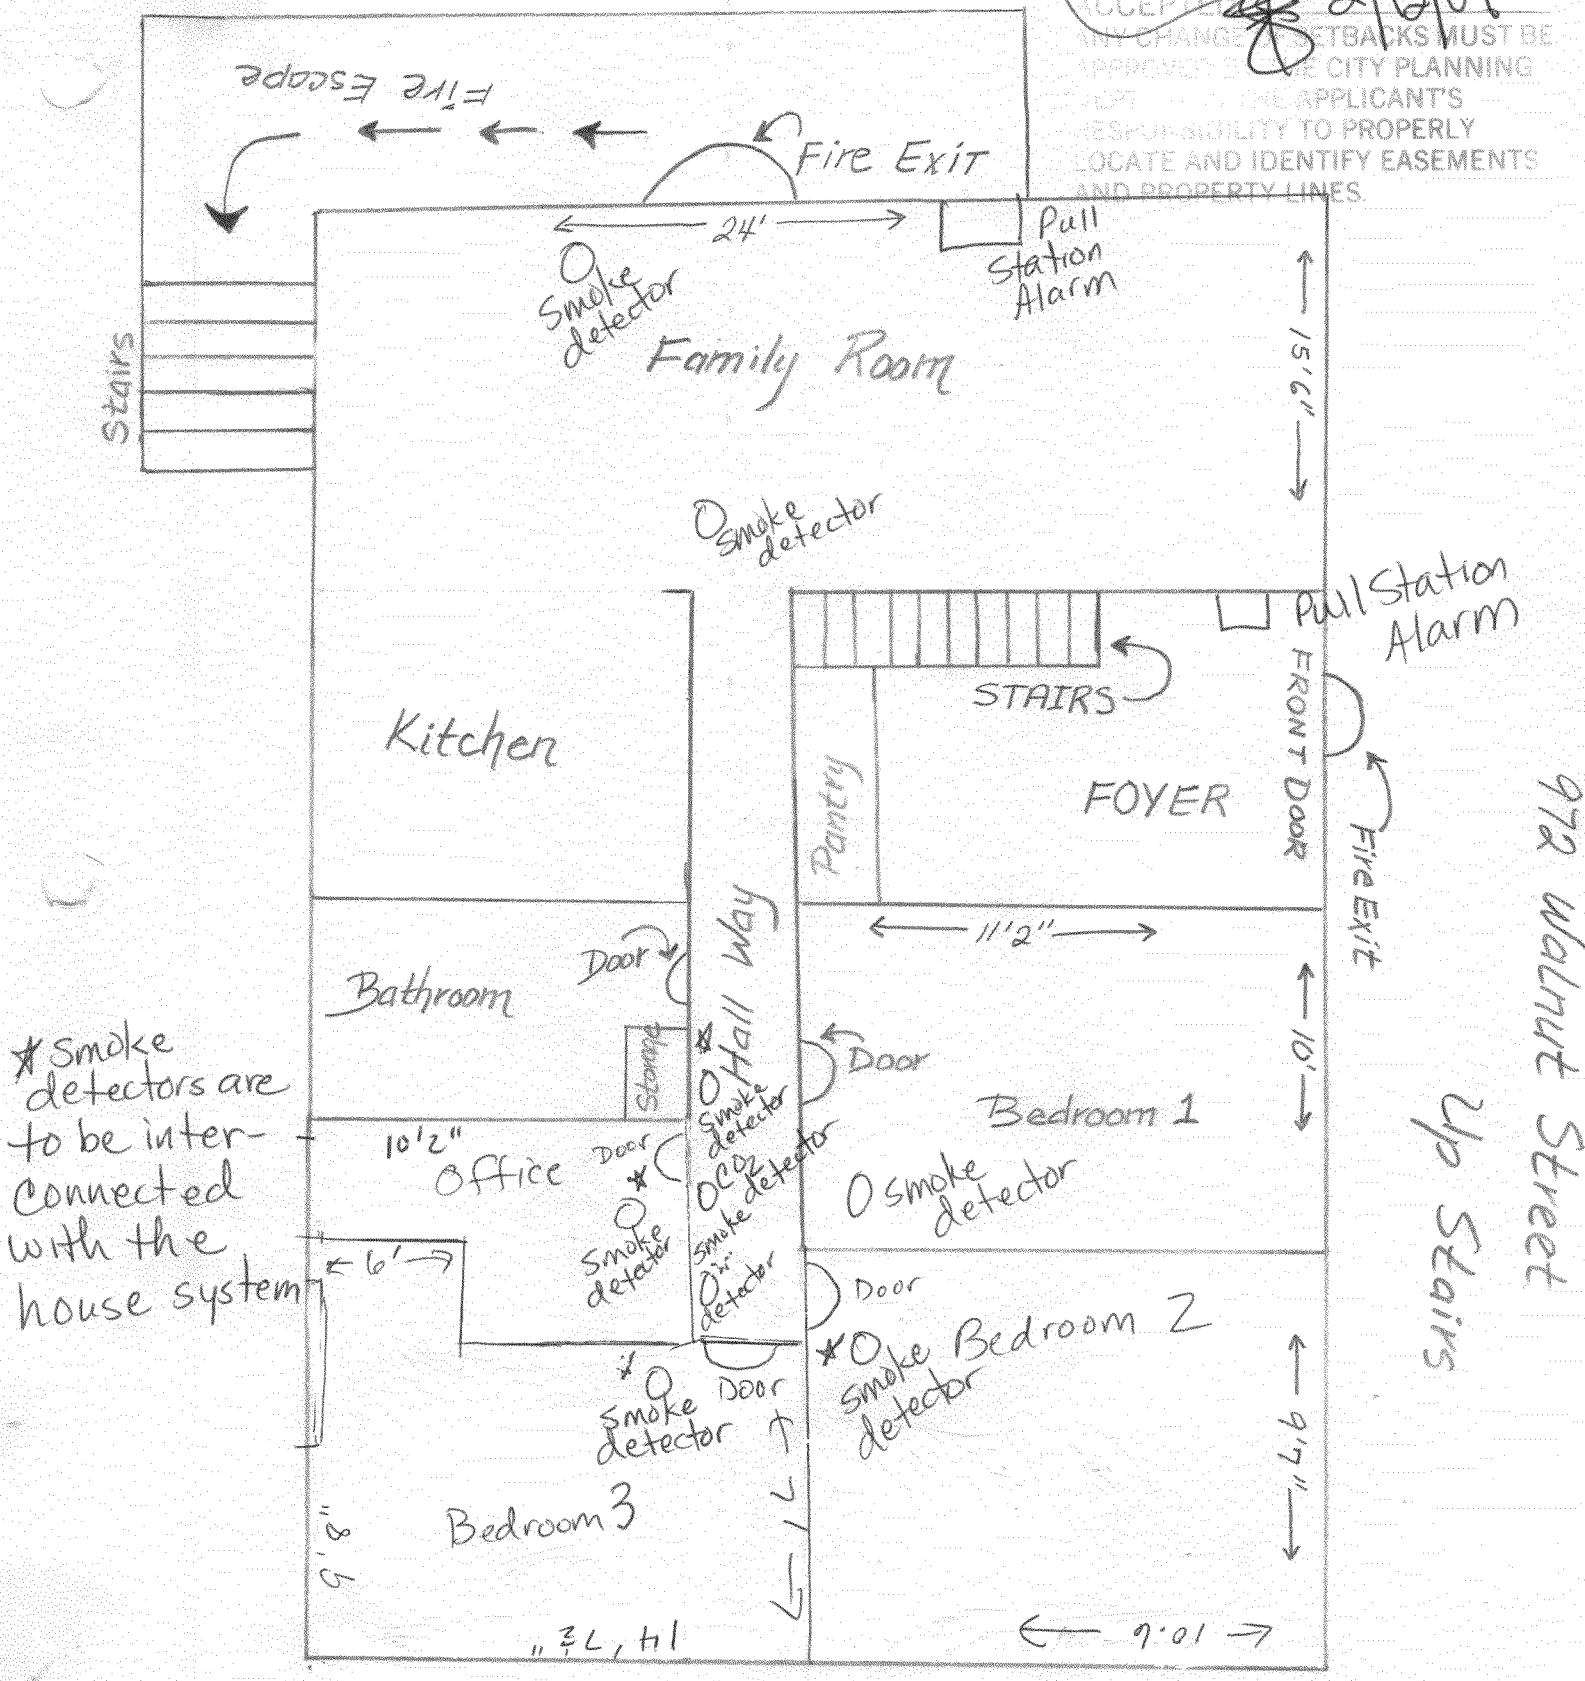 ACCEPTED
ANY CHANGE OF SETBACKS MUST BE
APPROVED BY THE CITY PLANNING
DEPT. THE APPLICANT'S
RESPONSIBILITY TO PROPERLY
LOCATE AND IDENTIFY EASEMENTS
AND PROPERTY LINES
Fire Escape
Fire Exit
24'
Pull
Station
Alarm
Smoke
detector
Family Room
15'6"
Stairs
Smoke
detector
Pull Station
Alarm
STAIRS
FRONT DOOR
Kitchen
Pantry
FOYER
Fire Exit
972 Walnut Street
Up Stairs
Hall Way
11'2"
Door
Bathroom
10'
Storage
Door
Bedroom 1
* Smoke
detectors are
to be inter-
connected
with the
house system
10'2"
Office
Door
*
smoke
detector
*
smoke
detector
CO2
detector
smoke
detector
smoke
detector
6'
Door
Bedroom 2
*
smoke
detector
*
smoke
detector
Door
9'7"
Bedroom 3
14'
10'.6